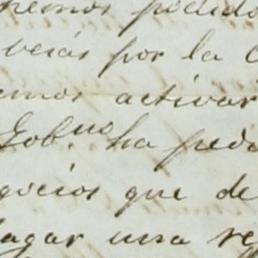 hemos pedido
veias por la
emos activar
Gob.no ha pedi
gocios que de
pagar una re